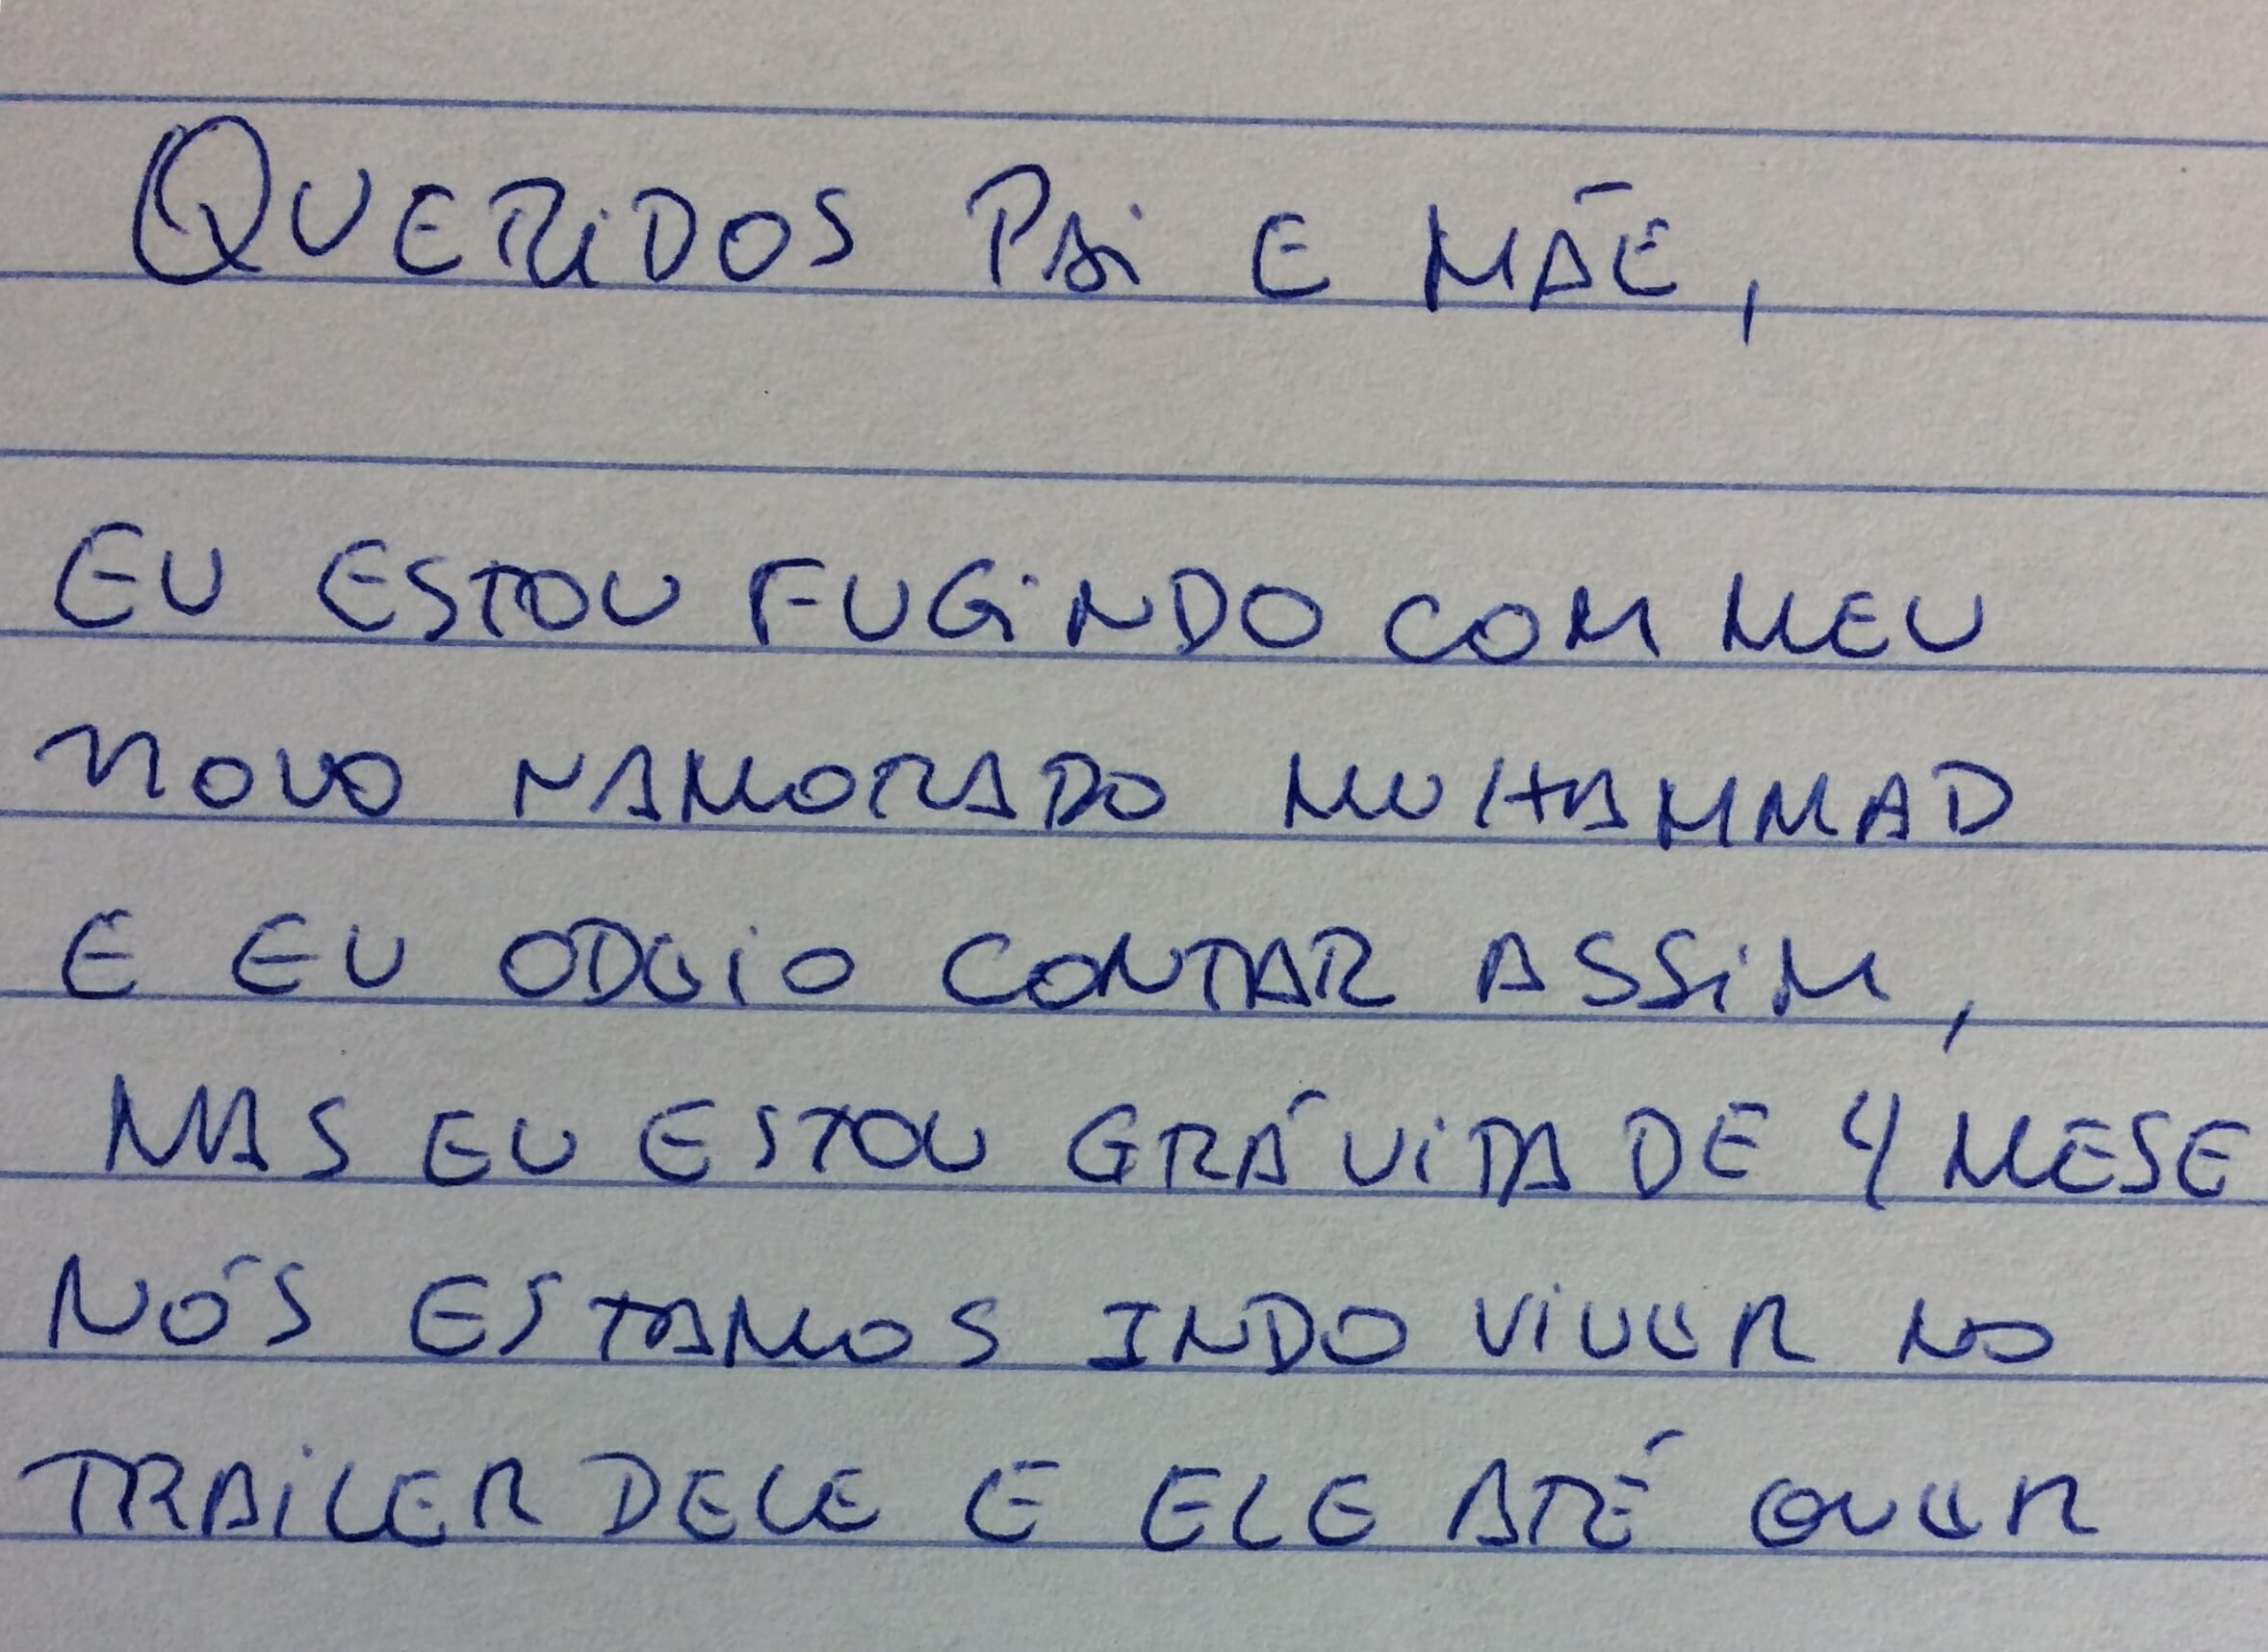 QUERIDOS PAI E MÃE,
EU ESTOU FUGINDO COM MEU
NOVO NAMORADO MUHAMMAD
E EU ODEIO CONTAR ASSIM,
MAS EU ESTOU GRÁVIDA DE 4 MESE
NÓS ESTAMOS INDO VIVER NO
TRAILER DELE E ELE ATÉ QUER